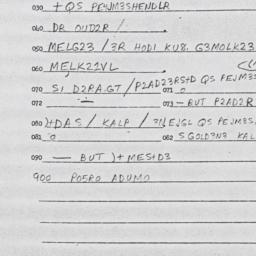 030 + QS PEWM3SHENDLR
040 DR OUD2R / .
050 MELG23 / 3R HODI KU8. G3MOLK23
060 MELK21VL
070 SI D2RA.GT / P2AD23RS+D QS PEJM3S 071 0
072 073 — BUT P2AD2R
080 )+DAS / KALA / QS PEJM3S.
081 0 082 SGOLD3N3 KAL
090 — BUT )+ MES+D3
900 PO5RO ADUMO